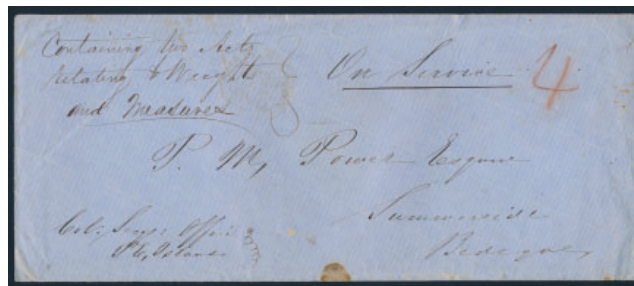 Containing two Acts
relating to Weights
and Measures
On Service
4
P. M, Power Esquire
Summerside
Bedeque,
Col: Secys: Office
P. E, Island